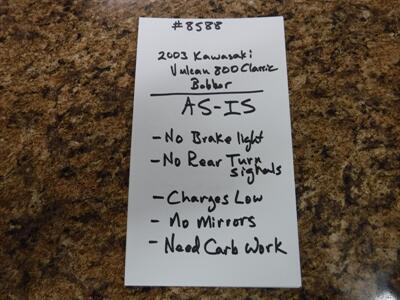 #8588
2003 Kawasaki
Vulcan 800 Classic
Bobber
AS-IS
- No Brake light
- No Rear Turn
signals
- Charges Low
- No Mirrors
- Need Carb Work